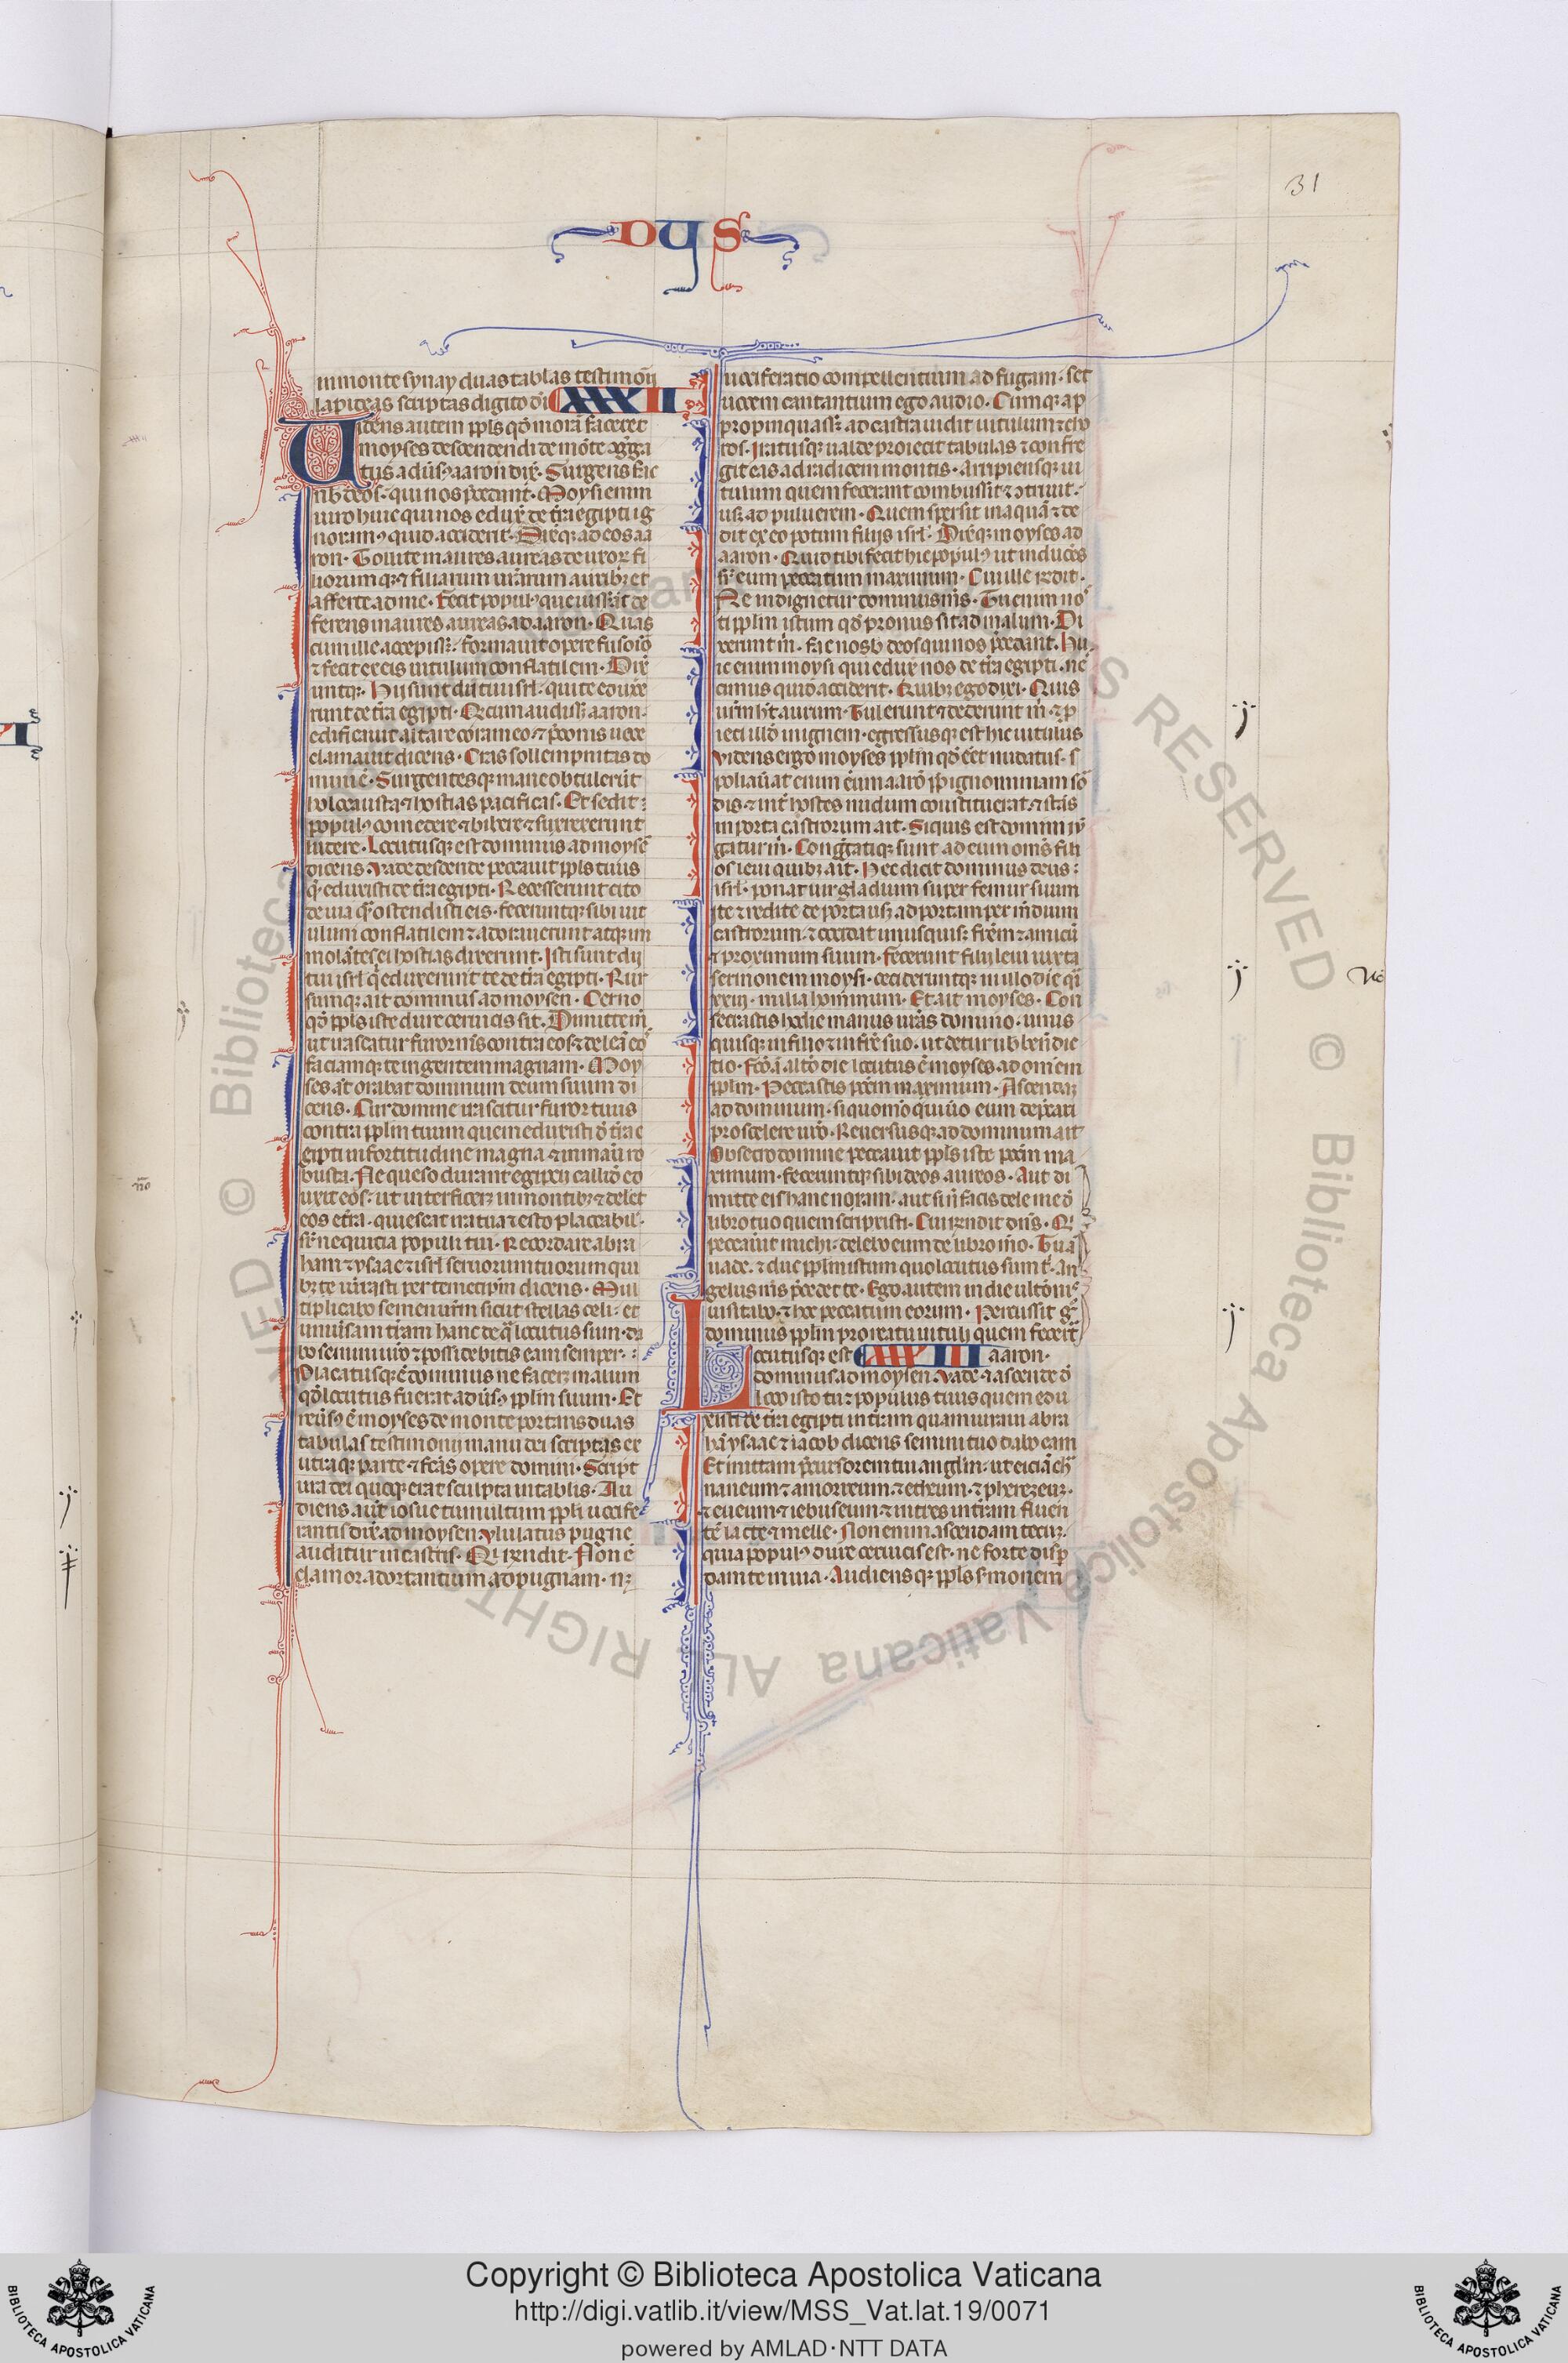 31
DYS
in monte synay duas tablas testimoñ
lapideas scriptas digito dī XXXII
Uidens autem ppls qđ morā faceret
moyses descendendi de mōte ɔg̃ga
tus adūs aaron dix̄. Surgens fac
nob deos. qui nos p̄cedant. Moysi enim
uiro huic qui nos edux̄ de t̄ra egipti ig
noramꝰ quid acciderit. Dix̄q; ad eos aa
ron. Tollite inaures aureas de uxoꝝ fi
liorumq; ⁊ filiarum ur̄arum auribꝫ et
afferte ad me. Fecit populꝰ que iusserat de
ferens inaures aureas ad aaron. Quas
cum ille accepissꝫ. formauit opere fusorio
⁊ fecit ex eis uitulum conflatilem. Dix̄
untq;. Hij sunt dii tui isrl. qui te eduxe
runt de t̄ra egipti. Qd cum audissꝫ aaron.
edificauit altare coram eo ⁊ p̄conis uoce
clamauit dicens. Cras sollempnitas do
mini ē. Surgentesq; mane obtulerūt
holocausta ⁊ hostias pacificas. Et sedit
populꝰ comedere ⁊ bibere ⁊ surrexerunt
ludere. Locutusq; est dominus ad moysē
dicens. Uade descende peccauit ppls tuus
q̄ eduxisti de t̄ra egipti. Recesserunt cito
de uia q̄ ostendisti eis. feceruntq; sibi uit
ulum conflatilem ⁊ adorauerunt atq; im
molātes ei hostias dixerunt. Isti sunt dij
tui isrl q̄ eduxerunt te de t̄ra egipti. Rur
sumq; ait dominus ad moysen. Cerno
qđ ppls iste dure ceruicis sit. Dimitte m̄
ut irascatur furor m̄s contra eos ⁊ deleā eos
faciamq; te in gentem magnam. Moy
ses at̄ orabat dominum deum suum di
cens. Cur domine irascitur furor tuus
contra pplm tuum quem eduxisti d̄ t̄ra e
gipti in fortitudine magna ⁊ in manu ro
busta. Ne queso dicant egipcij callide ed
uxit eos. ut interficeꝫ in montibꝫ ⁊ deleꝫ
eos et̄ra. quiescat ira tua ⁊ esto placabil
sr̄ nequicia populi tui. Recordare abra
ham ⁊ ysaac ⁊ isrl seruorum tuorum qui
bꝫ te iurasti per temetip̄m dicens. Mul
tiplicabo semen ur̄m sicut stellas celi. et
uniūsam t̄ram hanc de q̄ locutus sum. da
bo semini ur̄o ⁊ possidebitis eam semper.
Placatusq; ē dominus ne faceꝫ malum
qđ locutus fuerat adūsꝰ pplm suum. Et
reūsꝰ ē moyses de monte portans duas
tabulas testimonij manu dei scriptas ex
utraq; parte ⁊ fc̄as opere domini. Script
ura dei quoq; erat sculpta in tablis. Au
diens aut̄ iosue tumultum ppli uocife
rantis dix̄ ad moysen. Ululatus pugne
auditur in castris. Qi r̄ndit. Non ē
clamor adortantium ad pugnam. nꝫ
uociferatio compellentium ad fugam. set
uocem cantantium ego audio. Cumq; ap
propinquassꝫ ad castra uidit uitulum ⁊ cho
ros. Iratusq; ualde proiecit tabulas ⁊ confre
git eas ad radicem montis. Arripiensq; ui
tulum quem fecerant combussit ⁊ ɔtriuit.
usꝫ ad puluerem. Quem spersit in aquā ⁊ de
dit ex eo potum filijs isrl. Dix̄q; moyses ad
aaron. Quid tibi fecit hic populꝰ ut induceꝫ
sr̄ eum peccatum maximum. Cui ille r̄ndit.
Ne indignetur dominus m̄s. Tu enim nos
ti pplm istum qđ pronus sit ad malum. Di
xerunt m̄. Fac nob deos qui nos p̄cedant. Hu
ic enim moysi qui edux̄ nos de t̄ra egipti. nes
cimus quid acciderit. Quibꝫ ego dixi. Quis
ur̄m h̄t aurum. Tulerunt ⁊ dederunt m̄. ⁊ p̄
ieci illđ in ignem. egressusq; est hic uitulus
Uidens ergo moyses pplm qđ eēt nudatus. s
poliau̅at enim eum aarō pp̄ ignominiam sor
dis. ⁊ int̄ hostes nudum constituerat. ⁊ stās
in porta castrorum ait. Siquis est domini iū
gatur m̄. Congr̄atiq; sunt ad eum om̄s fili
os leui quibꝫ ait. Hec dicit dominus deus
isrl. ponat uir gladium super femur suum
ite ⁊ redite de porta usꝫ ad portam per medium
castrorum. ⁊ occidat unusquisꝫ fr̄em ⁊ amicū
⁊ proximum suum. Fecerunt filij leui iuxta
sermonem moysi. cecideruntq; in illo die q̄i
xxiij. milia hominum. Et ait moyses. Con
secrastis hodie manus ur̄as domino. unus
quisq; in filio ⁊ in fr̄e suo. ut detur uob bn̄dic
tio. Fc̄o at̄ alt̄o die locutus ē moyses ad omnem
pplm. Peccastis pcc̄m maximum. Ascendā
ad dominum. si quomō quiūo eum dep̄cari
pro scelere ur̄o. Reuersusq; ad dominum ait
Obsecro domine peccauit ppls iste pcc̄m ma
ximum. feceruntq; sibi deos aureos. Aut di
mitte eis hanc noxam. aut si n̄ facis dele me d̄
libro tuo quem scripsisti. Cui r̄ndit dn̄s. Qi
peccauit michi. delebo eum de libro m̄o. Tu at̄
uade. ⁊ duc pplm istum quo locutus sum t̄. An
gelus m̄s p̄cedet te. Ego autem in die ultōnis
uisitabo ⁊ hoc peccatum eorum. Percussit g̊
dominus pplm pro reatu uituli quem fecit
Locutusq; est XXXIII aaron.
dominus ad moysen. Uade ⁊ ascende d̄
loco isto tu ⁊ populus tuus quem edu
xisti de t̄ra egipti in t̄ram quam iuraui abra
hā ysaac ⁊ iacob dicens semini tuo dabo eam
Et mittam p̄cursorem tui anglm. ut eiciā ch
naneum ⁊ amorreum. ⁊ etheum. ⁊ pherezeuꝫ.
⁊ eueum ⁊ iebuseum ⁊ intres in t̄ram fluen
tē lacte ⁊ melle. Non enim ascendam tecuꝫ.
quia populꝰ dure ceruicis est. ne forte disp
dam te in uia. Audiensq; ppls s̄monem
Copyright © Biblioteca Apostolica Vaticana
http://digi.vatlib.it/view/MSS_Vat.lat.19/0071
powered by AMLAD·NTT DATA